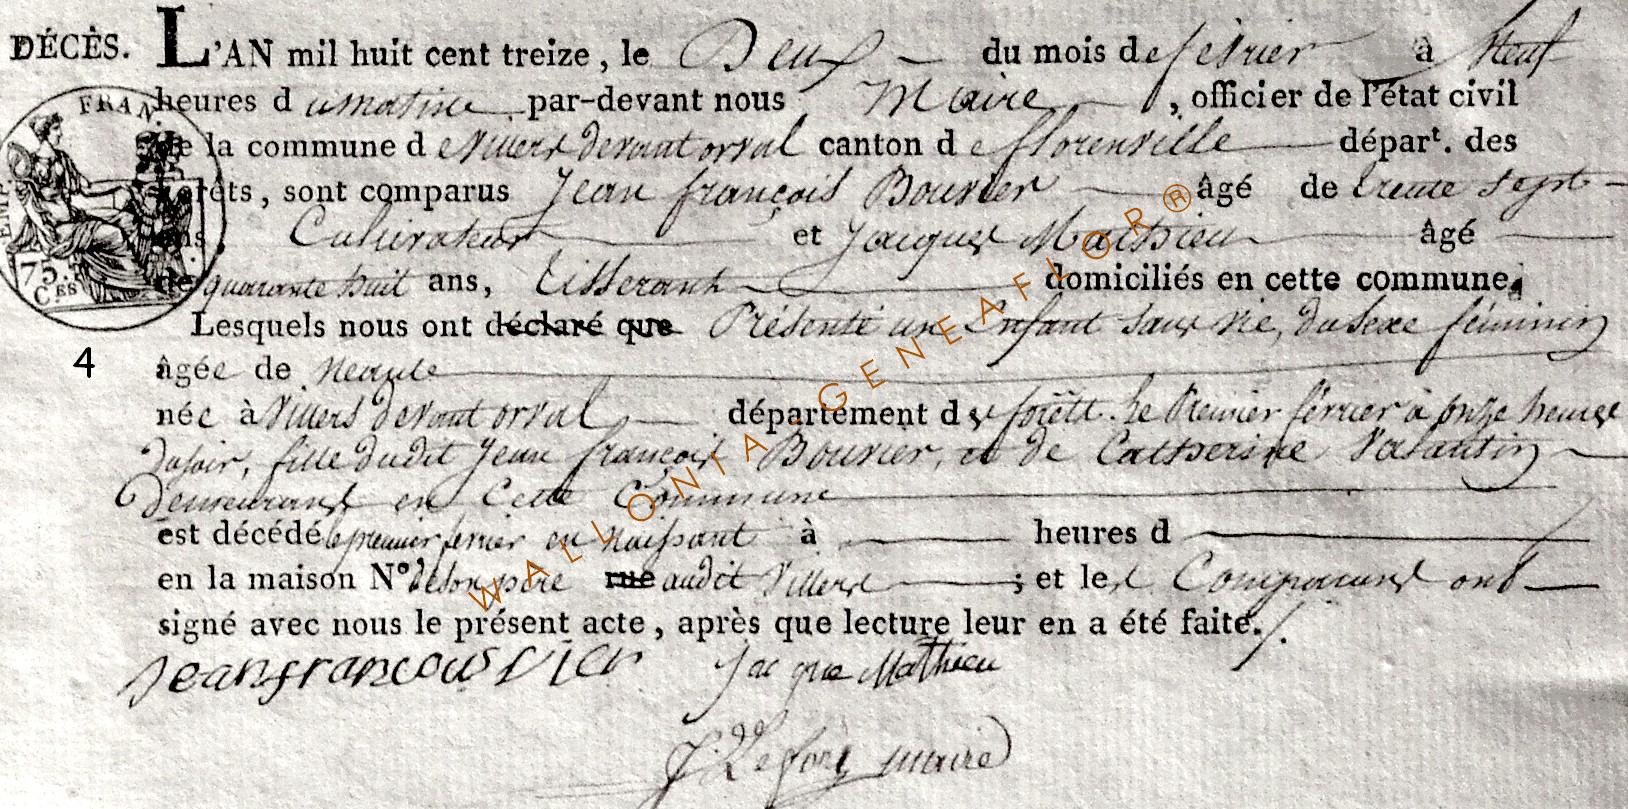 DÉCÈS. L'AN mil huit cent treize, le Deux du mois de février à Neuf
heures du matin par-devant nous Maire, officier de l'état civil
de la commune de Villers devant orval canton de florenville départ. des
forêts, sont comparus Jean françois Bouvier âgé de trente sept
ans, Cultivateur et Jacques Mathieu âgé
de quarante huit ans, tisserant domiciliés en cette commune.
Lesquels nous ont déclaré que Présenté un Enfant sans vie, du sexe féminin
4
âgée de
née à Villers devant orval département des forêtt. Le Premier février à onze heures
Dusoir, fille dudit Jean françois Bouvier, et de Catherine Valantin
Demeurant en Cette Commune
est décédé le premier fevrier en naissant à heures d
en la maison N° de son père rue audit Villers ; et les Comparans ont
signé avec nous le présent acte, après que lecture leur en a été faite.
Jacque Mathieu
maire
FRAN
EMP
75.
CES
WALLONIA GENEAFLOR®